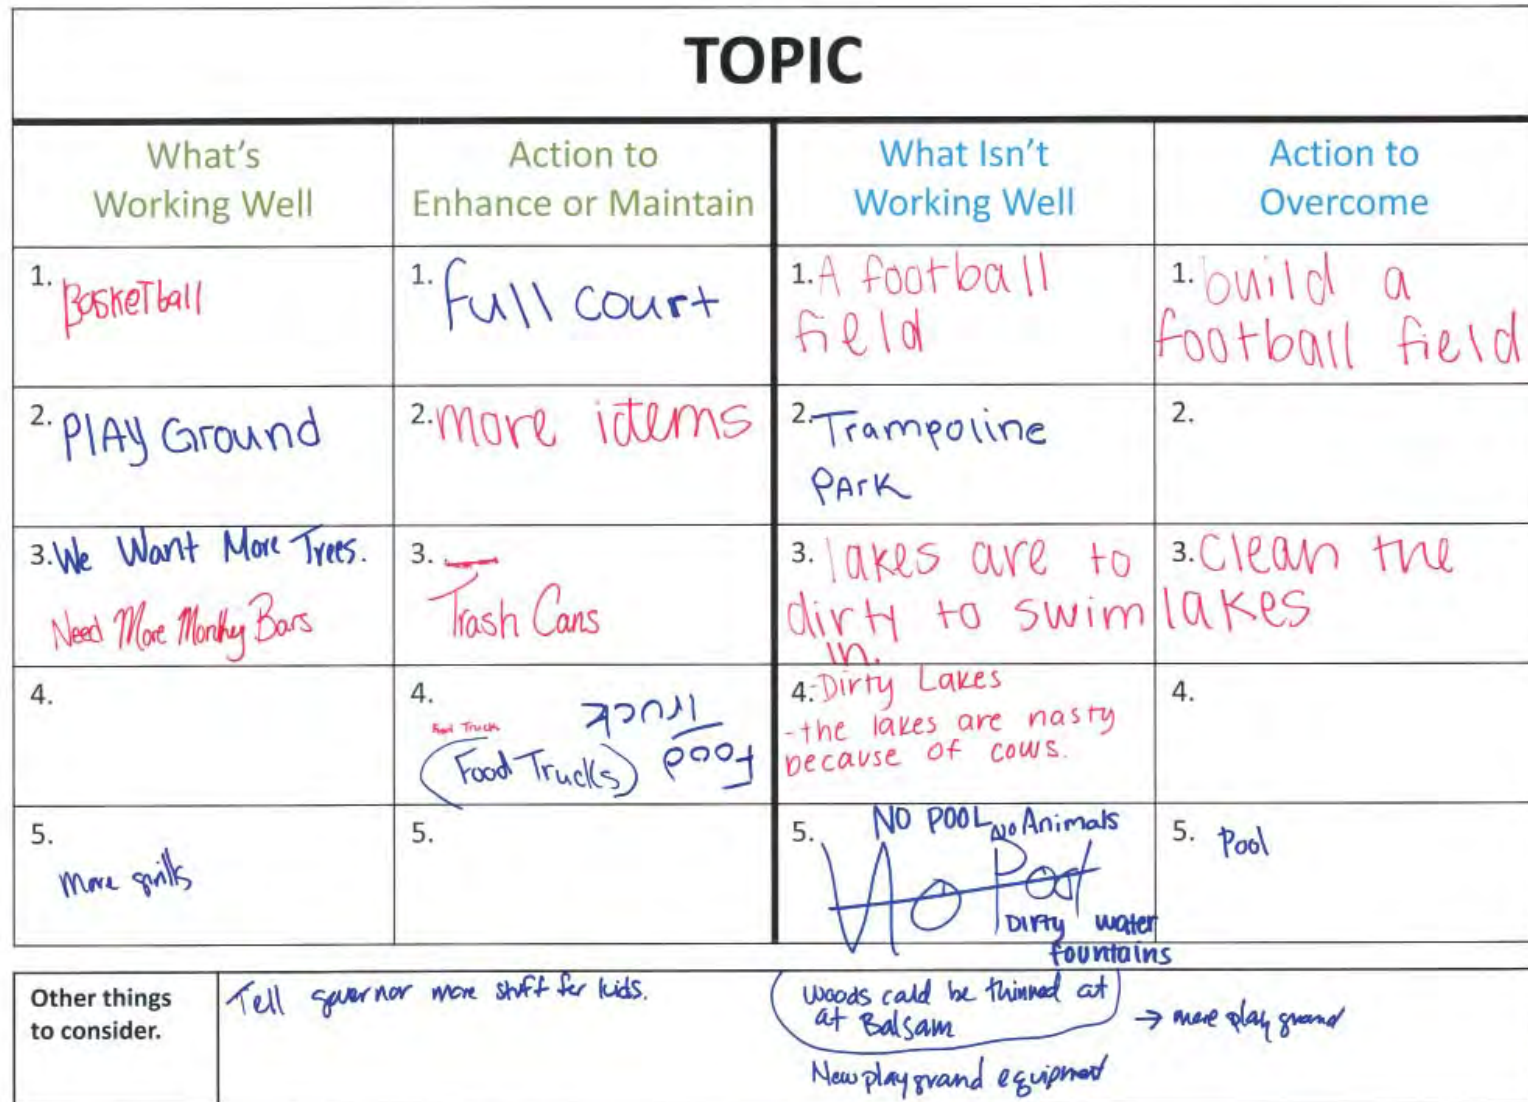 TOPIC
What's
Working Well
Action to
Enhance or Maintain
What Isn't
Working Well
Action to
Overcome
1. BaskeTball
1. full court
1. A football
field
1. build a
football field
2. PlAy Ground
2. more idems
2. Trampoline
PArk
2.
3. We Want More Trees.
Need More Monkey Bars
3.
Trash Cans
3. lakes are to
dirty to swim
in.
3. Clean the
lakes
4.
4.
Food Truck
Food Truck
(Food Trucks)
4. -Dirty Lakes
-the lakes are nasty
because of cows.
4.
5.
more grills
5.
5. NO POOL No Animals
No Pool
Dirty water
fountains
5. Pool
Other things
to consider.
Tell governor more stuff for kids.
woods could be thinned at
at Balsam
→ more play ground
New playground equipment